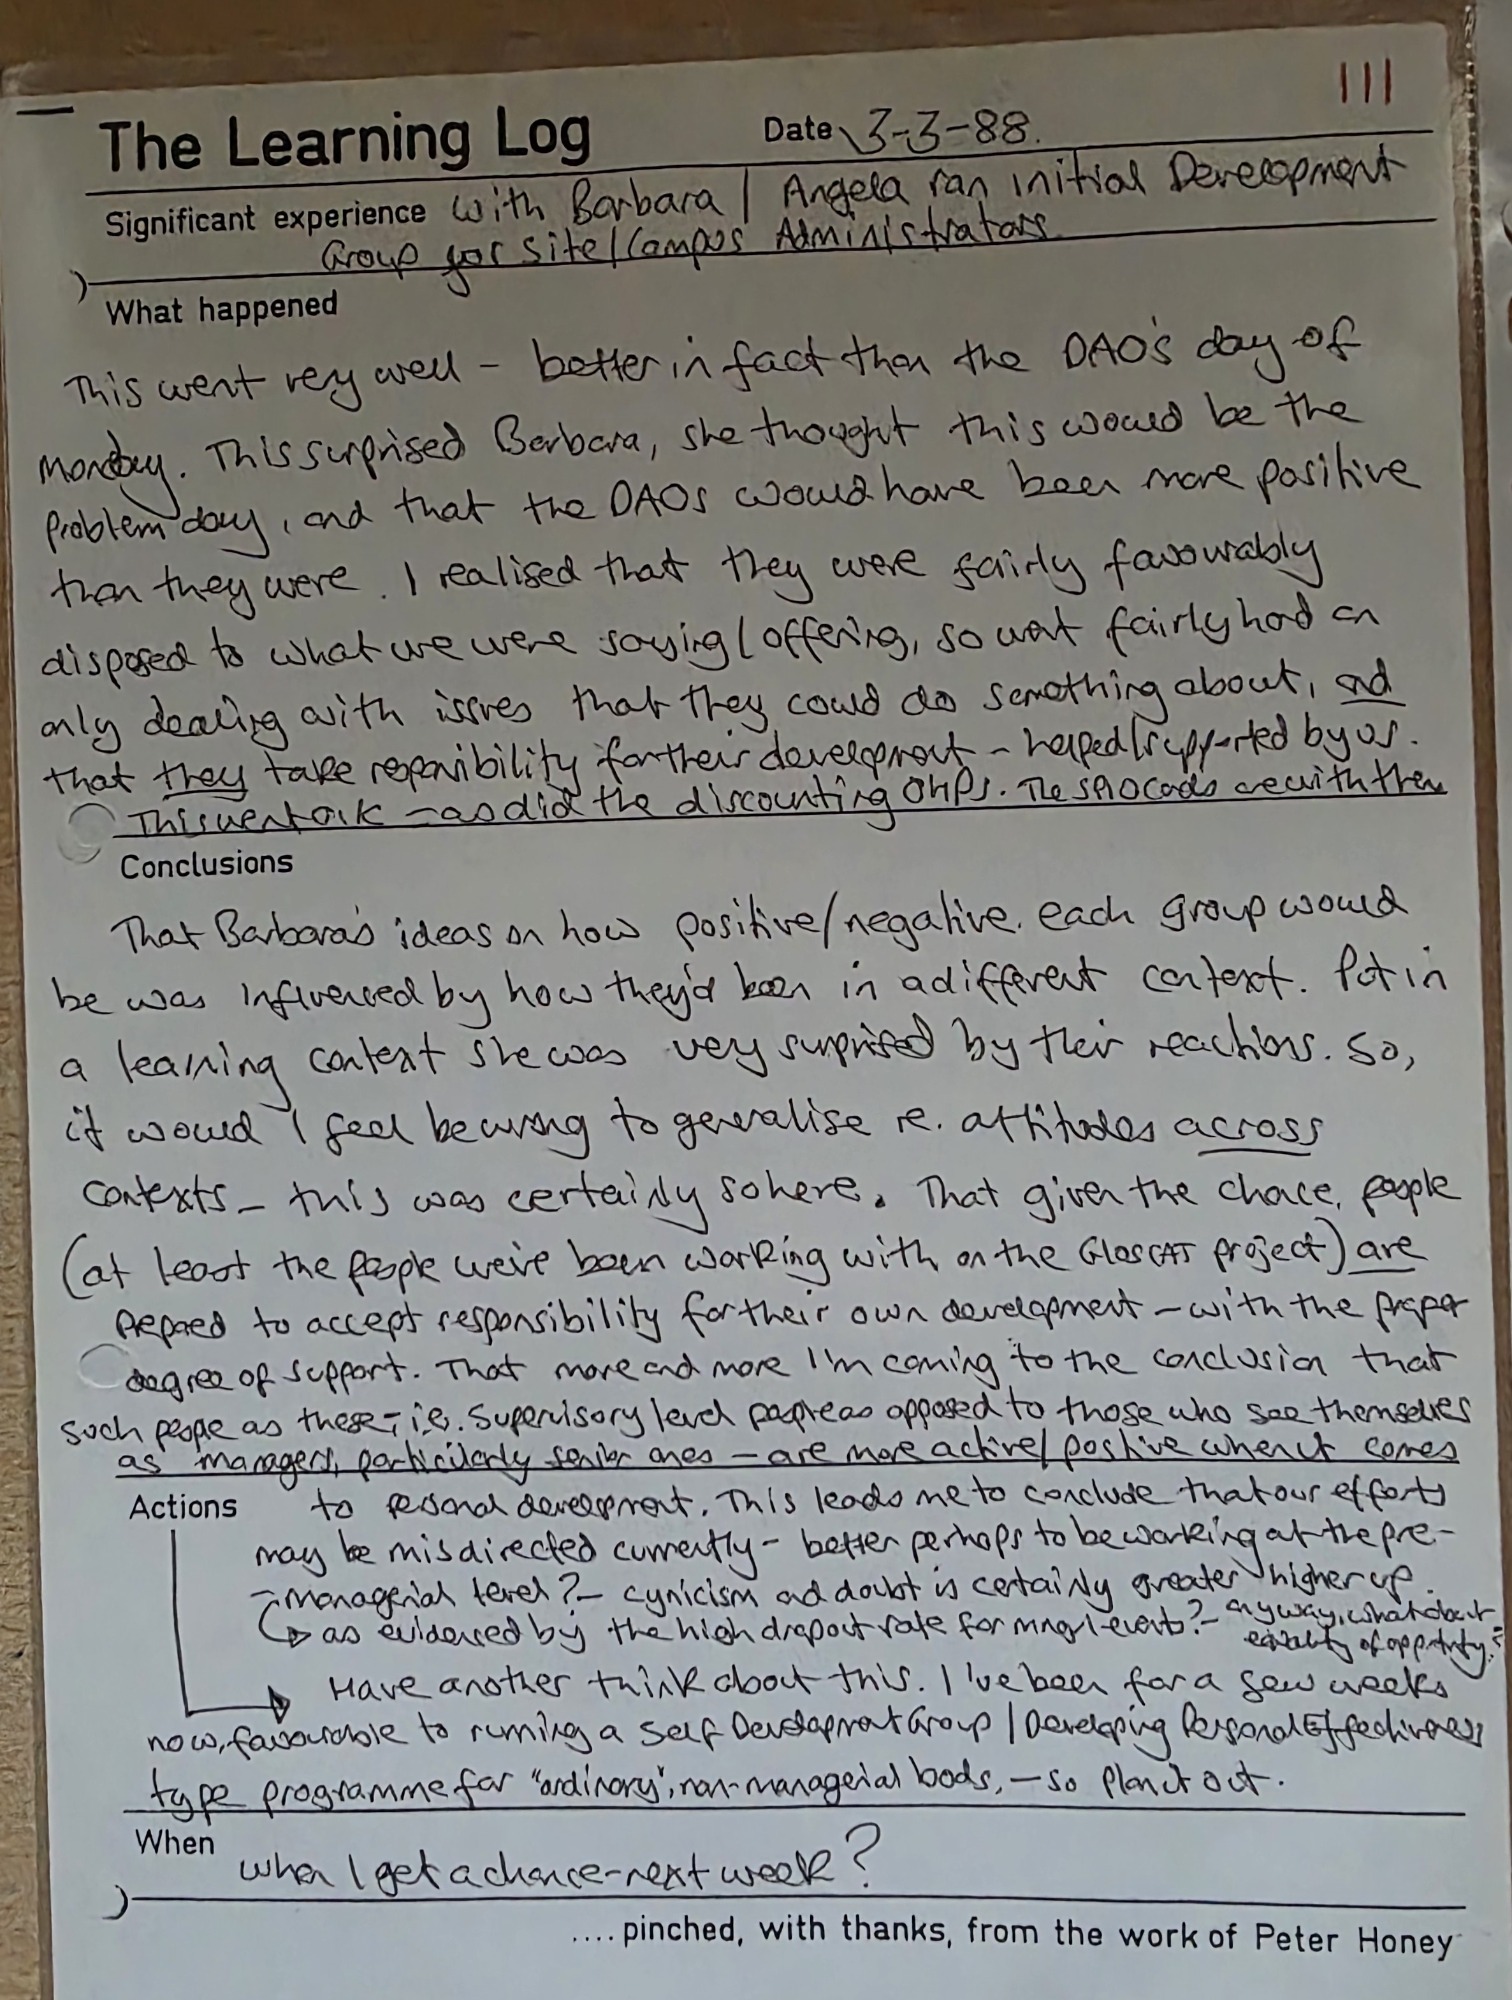 111
The Learning Log Date 3-3-88.
Significant experience with Barbara / Angela ran initial Development
Group for Site/Campus Administrators
What happened
This went very well - better in fact than the DAO's day of
Monday. This surprised Barbara, she thought this would be the
problem day, and that the DAOs would have been more positive
than they were. I realised that they were fairly favourably
disposed to what we were saying/offering, so went fairly hard on
only dealing with issues that they could do something about, and
that they take reponibility for their development - helped/supported by us.
This went ok - as did the discounting OHPs. The are with them
Conclusions
That Barbara's ideas on how positive/negative. each group would
be was influenced by how they'd been in a different context. Put in
a learning context she was very surprised by their reactions. So,
it would I feel be wrong to generalise re. attitudes across
contexts - this was certainly so here. That given the chance, people
(at least the people we've been working with on the GlosCAT project) are
prepared to accept responsibility for their own development - with the proper
degree of support. That more and more I'm coming to the conclusion that
such people as these - i.e. supervisory level people as opposed to those who see themselves
as managers, particularly senior ones - are more active/positive when it comes
Actions to personal development. This leads me to conclude that our efforts
may be misdirected currently - better perhaps to be working at the pre-
-managerial level? - cynicism and doubt is certainly greater higher up.
as evidenced by the high dropout rate for mngrl events? - anyway, what about
equality of opportunity?
Have another think about this. I've been for a few weeks
now, favourable to running a Self Development Group / Developing Personal Effectiveness
type programme for "ordinary", non-managerial bods, - so plan it out.
When when I get a chance - next week?
.... pinched, with thanks, from the work of Peter Honey